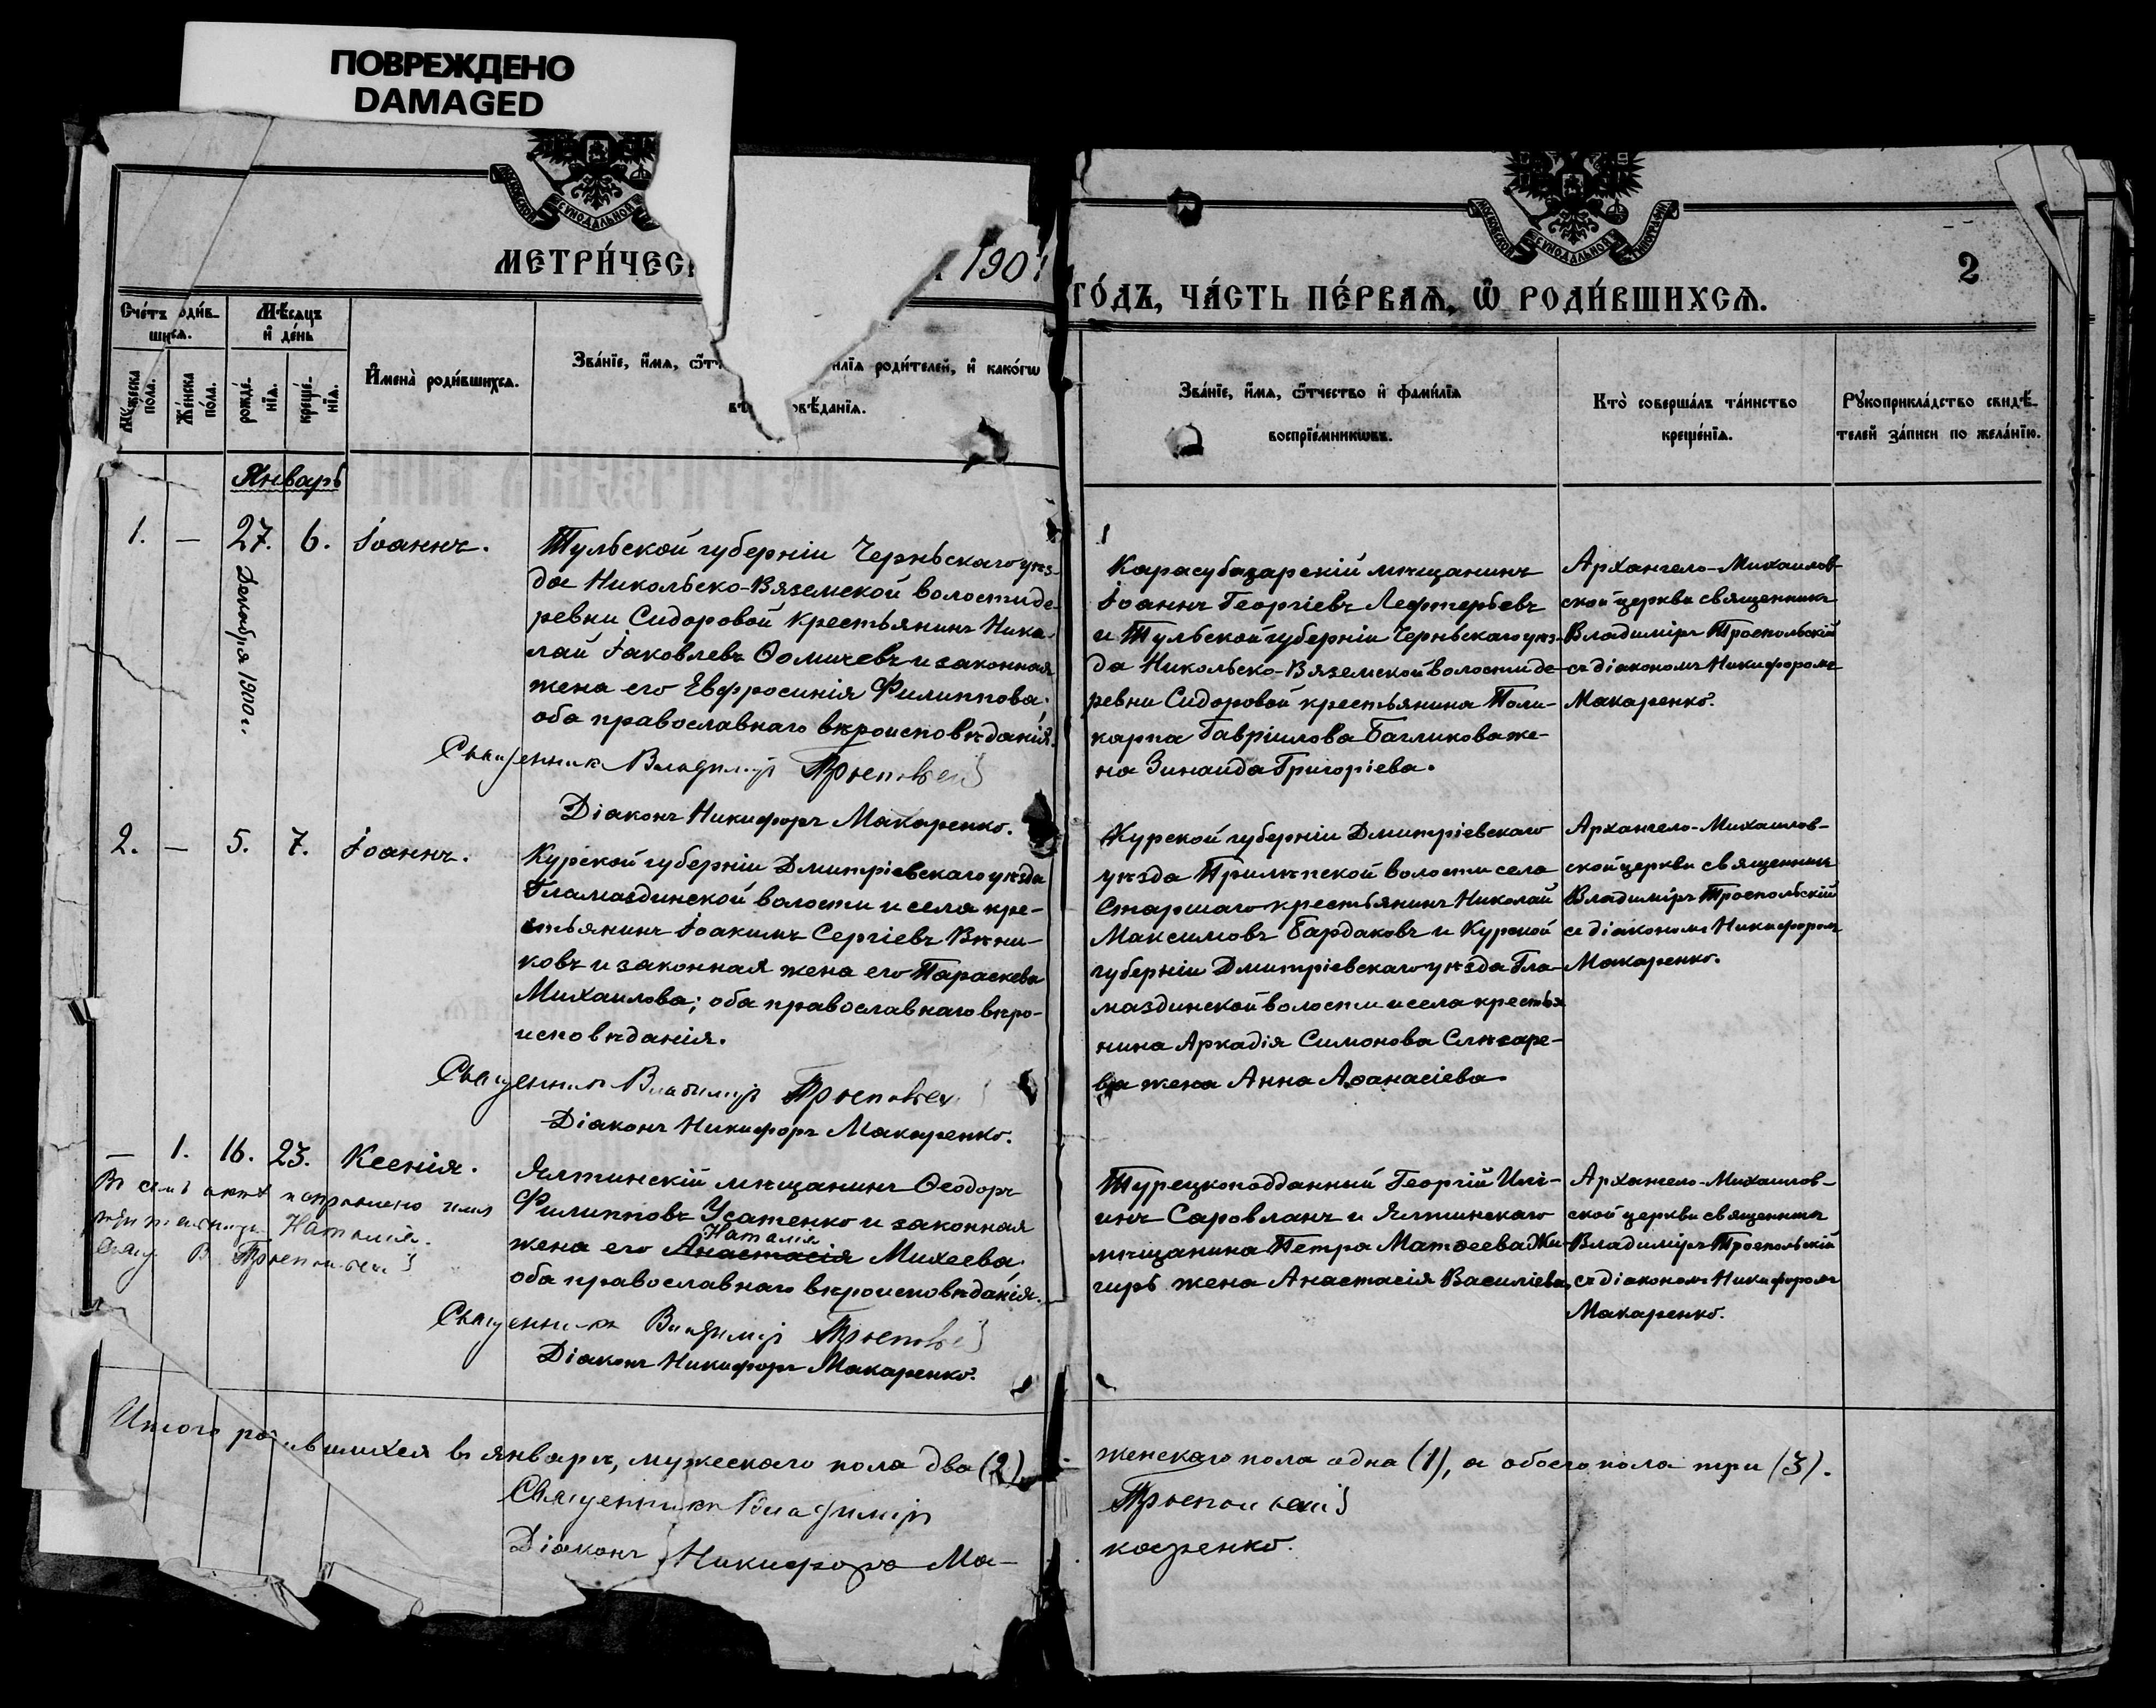 ПОВРЕЖДЕНО
DAMAGED
МОСКОВСКОЙ СУНОДАЛЬНОЙ
МОСКОВСКОЙ СУНОДАЛЬНОЙ ТИПОГРАФІИ
2
МЕТРИ́ЧЕС 190
ГО́ДЪ, ЧА́СТЬ ПЕ́РВАѦ, Ѡ҆ РОДИ́ВШИХСѦ.
Сче́тъ роди́в-
шихся.
Мѣ́сяцъ
и҆ де́нь
Му́жеска
по́ла.
Же́нска
по́ла.
рожде́-
нїя.
креще́-
нїя.
И҆мена̀ роди́вшихся.
Зва́нїе, и҆́мя, ѻ҆́тч илїя роди́телей, и҆ како́гѡ
вѣ овѣ́данїя.
Зва́нїе, и҆́мя, ѻ҆́тчество и҆ фами́лїя
воспрїе́мникѡвъ.
Кто̀ соверша́лъ та́инство
креще́нїя.
Рꙋкоприкла́дство свидѣ́-
телей за́писи по жела́нїю.
Январь
1. — 27. 6. Іоаннъ.
Декабря 1900 г.
Тульской губерніи Черньскаго уѣз-
да Никольско-Вяземской волости де-
ревни Сидоровой крестьянинъ Нико-
лай Іаковлевъ Ѳомичевъ и законная
жена его Евфросинія Филиппова;
оба православнаго вѣроисповѣданія.
Священникъ Владиміръ Троепольскій
Діаконъ Никифоръ Макаренко.
Карасубазарскій мѣщанинъ
Іоаннъ Георгіевъ Лефтерьевъ
и Тульской губерніи Черньскаго уѣз-
да Никольско-Вяземской волости де-
ревни Сидоровой крестьянина Поли-
карпа Гавріилова Багликова же-
на Зинаида Григоріева.
Архангело-Михаилов-
ской церкви священникъ
Владиміръ Троепольскій
съ діакономъ Никифоромъ
Макаренко.
2. — 5. 7. Іоаннъ.
Курской губерніи Дмитріевскаго уѣзда
Гламаздинской волости и села кре-
стьянинъ Іоакимъ Сергіевъ Вѣни-
ковъ и законная жена его Параскева
Михаилова; оба православнаго вѣро-
исповѣданія.
Священникъ Владиміръ Троепольскій
Діаконъ Никифоръ Макаренко.
Курской губерніи Дмитріевскаго
уѣзда Прилѣпской волости села
Старшаго крестьянинъ Николай
Максимовъ Бардаковъ и Курской
губерніи Дмитріевскаго уѣзда Гла-
маздинской волости и села крестья
нина Аркадія Симонова Слѣсаре-
ва жена Анна Аѳанасіева.
Архангело-Михаилов-
ской церкви священникъ
Владиміръ Троепольскій
съ діакономъ Никифоромъ
Макаренко.
— 1. 16. 23. Ксенія.
Въ семъ актѣ исправлено имя
Наталія.
Свящ. В. Троепольскій
Ялтинскій мѣщанинъ Ѳеодоръ
Филипповъ Усатенко и законная
Наталія
жена его Анастасія Михеева;
оба православнаго вѣроисповѣданія.
Священникъ Владиміръ Троепольскій
Діаконъ Никифоръ Макаренко.
Турецкоподданный Георгій Илі-
инъ Саровланъ и Ялтинскаго
мѣщанина Петра Матѳеева Жи-
гирь жена Анастасія Василіева,
Архангело-Михаилов-
ской церкви священникъ
Владиміръ Троепольскій
съ діакономъ Никифоромъ
Макаренко.
Итого родившихся въ январѣ, мужескаго пола два (2), женскаго пола одна (1), а обоего пола три (3).
Священникъ Владиміръ Троепольскій
Діаконъ Никифоръ Ма- каренко.